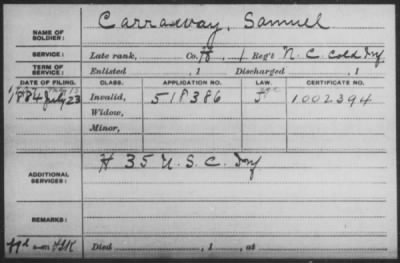 NAME OF SOLDIER: Carraway, Samuel
SERVICE: Late rank, Co. H, 1 Reg't N. C. Cold Inf
TERM OF SERVICE: Enlisted , 1 Discharged , 1
DATE OF FILING. CLASS. APPLICATION NO. LAW. CERTIFICATE NO.
1884 July 23 Invalid, 518386 1002394
Widow,
Minor,
ADDITIONAL SERVICES: H 35 U. S. C. Inf
REMARKS:
Died , 1 , at